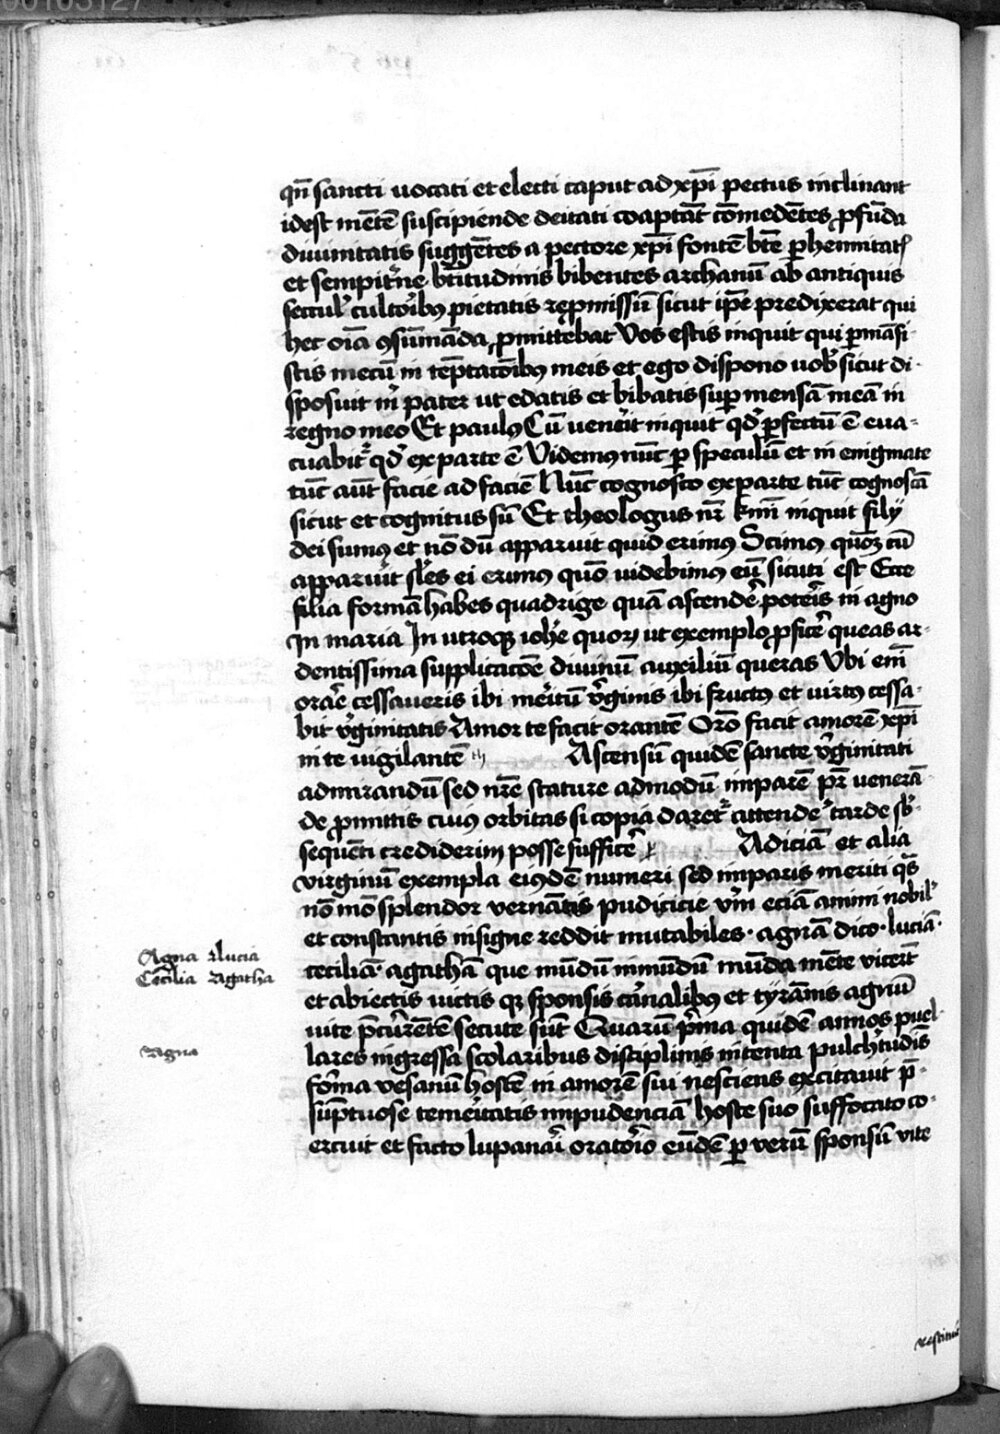 00103127
qn̄ sancti uocati et electi caput ad xp̄i pectus inclinant
idest mētē suscipiende deitati coaptāt cōmedētes ꝓfūda
diuinitatis suggētes a pectore xp̄i fontē btē ꝑhennitatꝭ
et sempitne btitudinis bibentes archanū ab antiquis
seculꝭ cultoibꝰ pietatis repmissū sicut ip̄e predixerat qui
hec oīa ꝯsūmāda ꝓmittebat Vos estis inquit qui ꝑmāsi
stis mecū in tēptacōibꝰ meis et ego dispono uobꝭ sicut di-
sposuit m̄ pater ut edatis et bibatis suꝑ mensā meā in
regno meo Et paulꝰ Cū uenit inquit qd̄ ꝑfectū ē eua-
cuabit qd̄ ex parte ē Videmꝰ nūc ꝑ speculū et in enigmate
tūc aūt facie ad faciē Nūc cognosco ex parte tūc cognoscā
sicut et cognitus sū Et theologus nr̄ kmi inquit filij
dei sumꝰ et nō dū apparuit quid erimus Scimꝰ quō cū
apparuit sles ei erimꝰ quō uidebimꝰ eū sicuti est Ecce
filia formā habes quadrige quā ascende poteis in agno
In maria In utroqꝫ iohe quoꝝ ut exemplo ꝓfice queas ar-
dentissima supplicacōe diuinū auxiliū queras Vbi em̄
orae cessaueris ibi meitū vginis ibi fructꝰ et uirtꝰ cessa-
bit vginitatis Amor te facit orantē Oro facit amorē xp̄i
in te uigilantē Ascensū quidē sancte vginitati
admirandū sed nrē stature admodū imparē pr̄ venerā-
de ꝓmittis cuius orbitas si copia daret attende tarde sb-
sequēti crediderim posse suffice Adiciā et alia
virginū exempla eiꝰdē numeri sed imparis meriti qs
nō mō splendor vernātis pudicicie vm̄ eciā animi nobilꝭ
et constantis insigne reddit mutabiles · agnā dico · luciā ·
ceciliā · agathā que mūdū inmūdū mūda mēte vicert
et abiectis uictis qꝫ sponsis canalibꝰ et tyrānis agnū
uite pcurētē secute sūt Quarū pma quidē annos puel
lares ingressa scolaribus disciplinis intenta pulchtudis
foma vesanū hostē in amorē sui nesciens excitauit p̄-
sūptuose temeitatis impudenciā hoste suo suffocato co-
ercuit et facto lupanai oratoio eūdē ꝑ verū sponsū vite
Agna Lucia
Cecilia Agatha
Agna